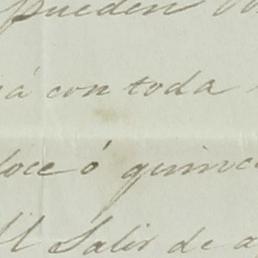 pueden
á con toda
doce ó quince
Salir de a